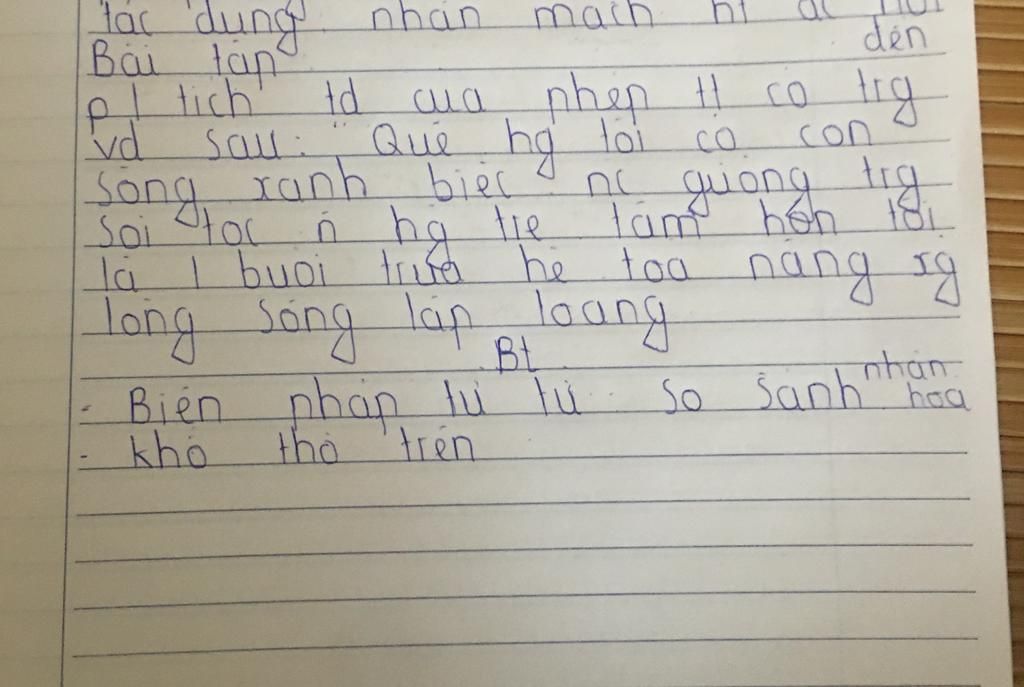 tác dụng nhấn mạch ht đc nói
đến
Bài tập
p / tích td của phép tt có trg
vd sau: " Quê hg tôi có con
sông xanh biếc nc gương trg
soi tóc n hg tre tâm hồn tôi
là 1 buổi trưa hè toả nắng xg
lòng sông lấp loáng
Bt
- Biện pháp tu từ so sánh nhân
hoá
- khổ thơ trên